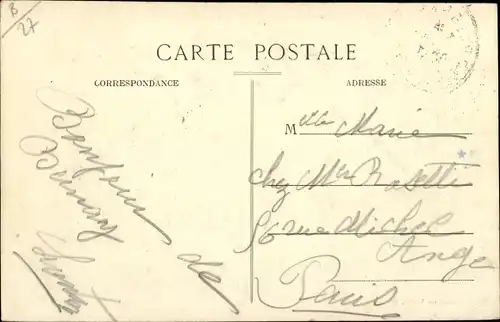 B
27
CARTE POSTALE
CORRESPONDANCE
ADRESSE
Bonjour de
Mlle Marie
chez Mr Rosetti
56 rue Michel
Ange
Paris